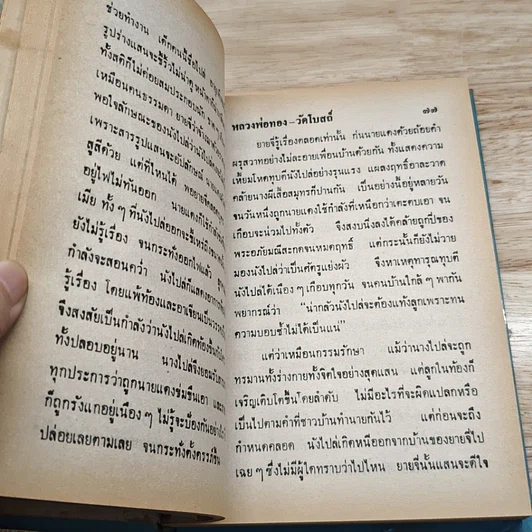 ช่วยทำงาน เด็กคนนี้ชื่อไปล่
รูปร่างแสนจะขี้ริ้วไม่น่าดู
ทั้งสติก็ไม่ค่อยสมประกอบนัก
เหมือนคนธรรมดา ยายจี่
พอใจลักษณะของนังไปล่
เพราะสารรูปแสนจะอัปลักษณ์
สู้ดีด้วย แต่ที่ไหนได้
อยู่ไฟไม่ทันออก นายแดงก็ใช้กำลัง
เมีย ทั้ง ๆ ที่นังไปล่ออกจะขี้เหร่
ยังไม่รู้เรื่อง จนกระทั่งออกไฟแล้ว
กำลังจะสอนคว่ำ นังไปล่ก็แสดงอาการ
รู้เรื่อง โดยแพ้ท้องและอาเจียน
จึงสงสัยเป็นกำลังว่านังไปล่เกิดท้อง
ทั้งปลอบอยู่นาน นางไปล่จึงยอม
ทุกประการว่าถูกนายแดงข่มขืนเอา และ
ก็ถูกรังแกอยู่เนือง ๆ ไม่รู้จะป้องกัน
ปล่อยเลยตามเลย จนกระทั่งตั้งครรภ์ขึ้น
หลวงพ่อทอง–วัดโบสถ์ ๗๗
ยายจี่รู้เรื่องตลอดเท่านั้น ก่นนายแดงด้วยถ้อยคำ
ผรุสวาทอย่างไม่ละอายเพื่อนบ้านด้วยกัน ทั้งแสดงความ
เหี้ยมโหดทุบตีนังไปล่อย่างรุนแรง แผลงฤทธิ์อาละวาด
คล้ายนางผีเสื้อสมุทรก็ปานกัน เป็นอย่างนี้อยู่หลายวัน
จนวันหนึ่งถูกนายแดงใช้กำลังที่เหนือกว่าเตะตบเอา จน
เกือบจะน่วมไปทั้งตัว จึงสงบนิ่งลงได้คล้ายถูกผีปอบของ
พระอภัยมณีสะกดจนหมดฤทธิ์ แต่กระนั้นก็ยังไม่วาย
มองนังไปล่ว่าเป็นศัตรูแย่งผัว จึงหาเหตุทารุณทุบตี
นังไปล่ได้เนือง ๆ เกือบทุกวัน จนคนบ้านใกล้ ๆ พากัน
พยากรณ์ว่า “น่ากลัวนังไปล่จะต้องแท้งลูกเพราะทน
ความบอบช้ำไม่ได้เป็นแน่”
แต่ว่าเหมือนกรรมรักษา แม้ว่านางไปล่จะถูก
ทรมานทั้งร่างกายทั้งจิตใจอย่างสุดแสน แต่ลูกในท้องก็
เจริญเติบโตขึ้นโดยลำดับ ไม่มีอะไรที่จะผิดแปลกหรือ
เป็นไปตามคำที่ชาวบ้านทำนายกันไว้ แต่ก่อนจะถึง
กำหนดคลอด นังไปล่เกิดหนีออกจากบ้านของยายจี่ไป
เฉย ๆ ซึ่งไม่มีผู้ใดทราบว่าไปไหน ยายจี่นั้นแสนจะดีใจ